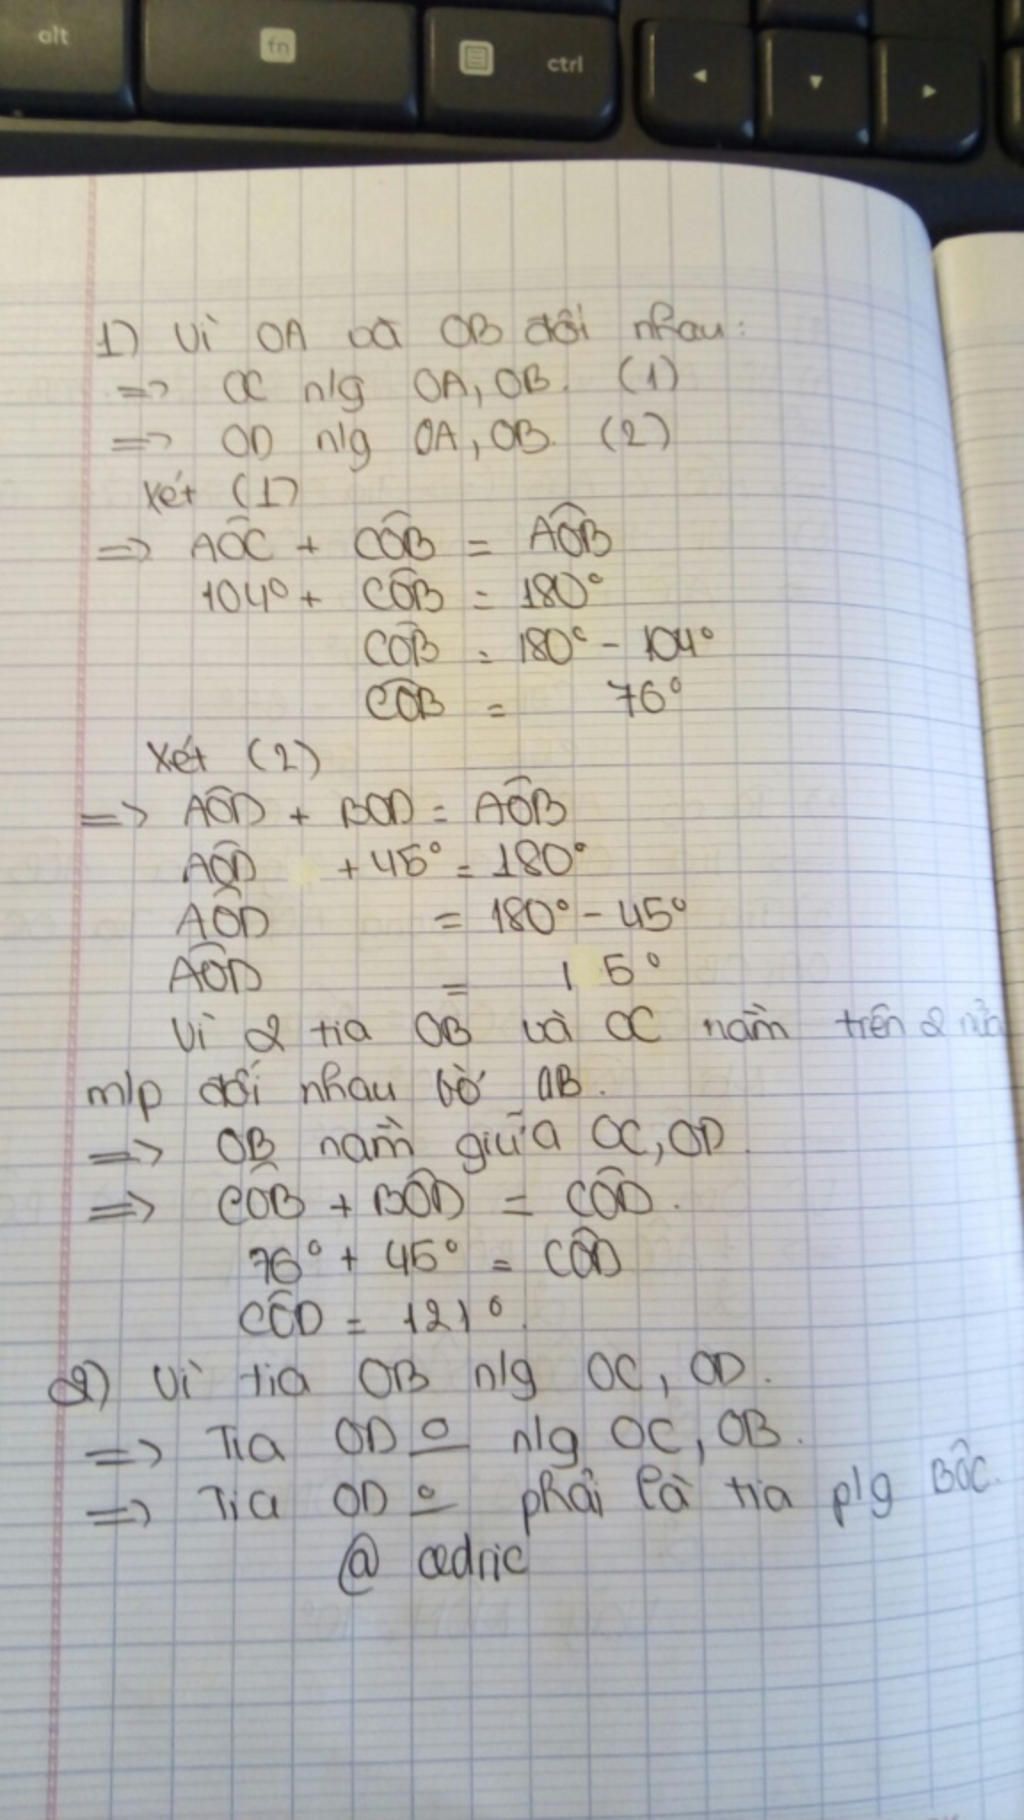 alt fn ctrl
1) Vì OA và OB đối nhau:
=> OC n/g OA, OB. (1)
=> OD n/g OA, OB. (2)
Xét (1)
=> AÔC + CÔB = AÔB
104° + CÔB = 180°
CÔB = 180° - 104°
CÔB = 76°
Xét (2)
=> AÔD + BOD = AÔB
AÔD + 45° = 180°
AÔD = 180° - 45°
AÔD = 1 5°
Vì 2 tia OB và OC nằm trên 2 nửa
m/p đối nhau bờ AB.
=> OB nằm giữa OC, OD.
=> CÔB + BÔD = CÔD.
76° + 45° = CÔD
CÔD = 121°.
2) Vì tia OB n/g OC, OD.
=> Tia OD o n/g OC, OB.
=> Tia OD o phải là tia p/g BÔC.
@ cedric